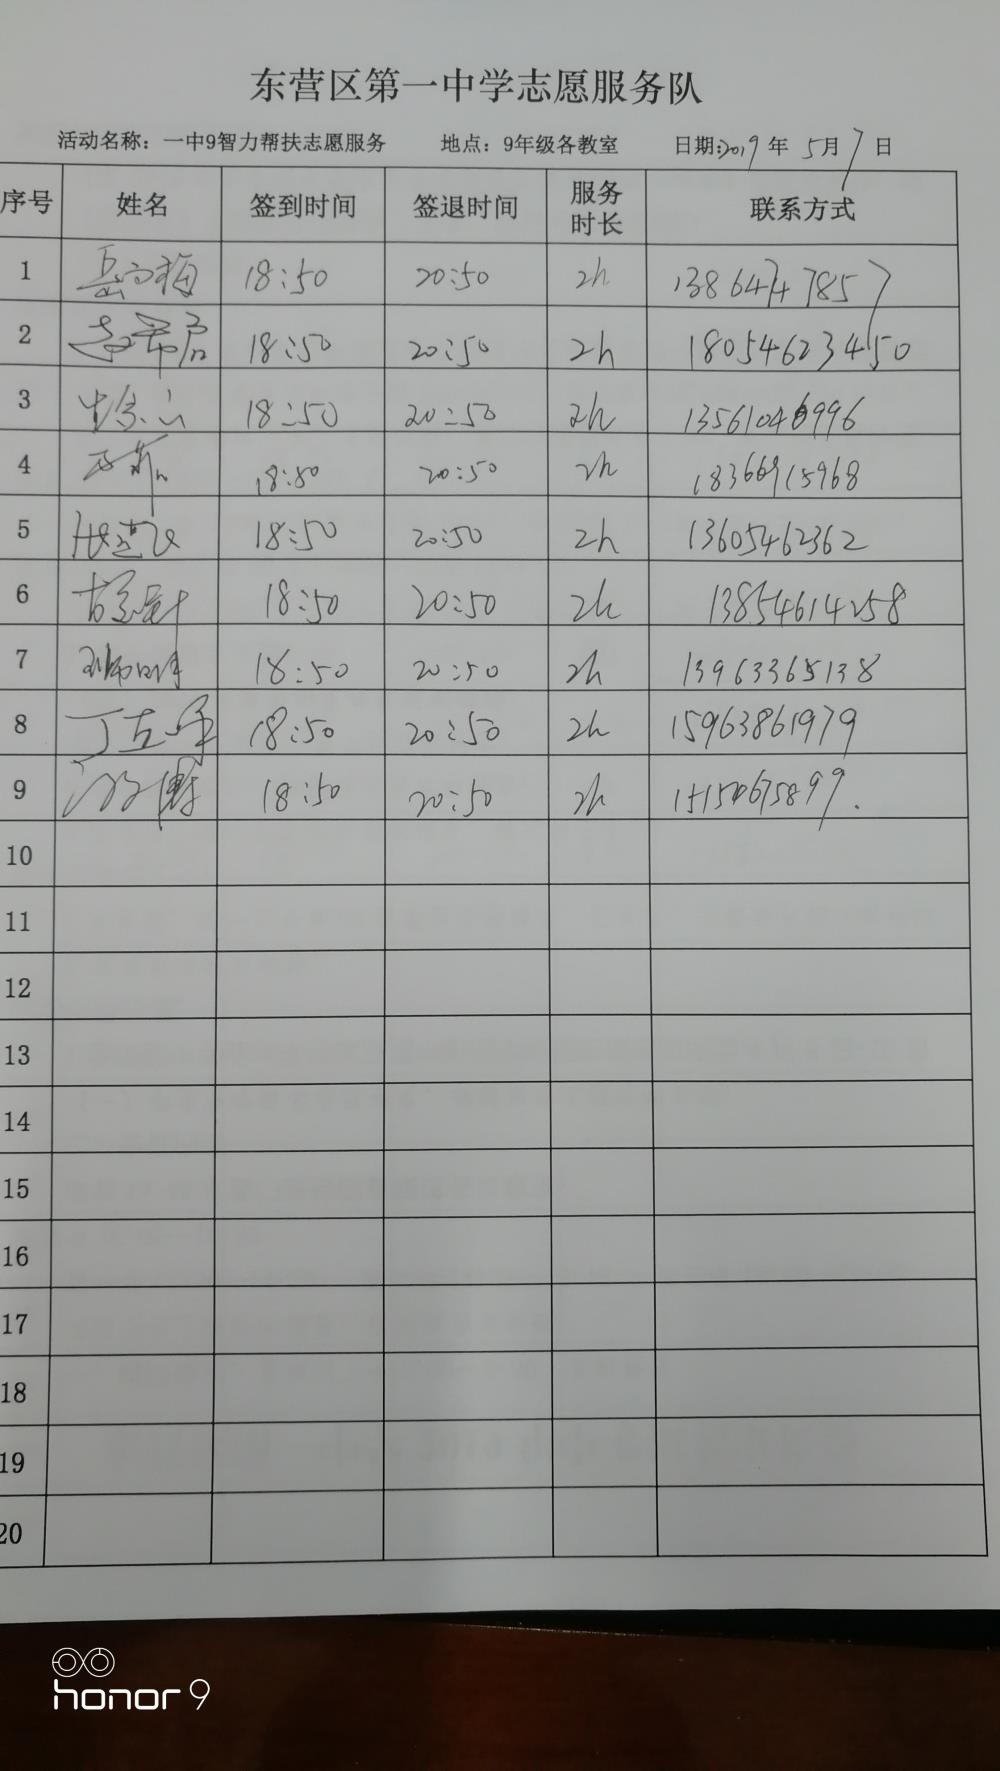 东营区第一中学志愿服务队
活动名称：一中9智力帮扶志愿服务 地点：9年级各教室 日期:2019年 5月7日
序号 姓名 签到时间 签退时间 服务时长 联系方式
1 18:50 20:50 2h
2 18:50 20:50 2h 18054623450
3 18:50 20:50 2h 13561046996
4 18:50 20:50 2h 18366915968
5 18:50 20:50 2h 13605462362
6 18:50 20:50 2h 13854614258
7 18:50 20:50 2h 13963365138
8 18:50 20:50 2h 15963861979
9 18:50 20:50 2h
10
11
12
13
14
15
16
17
18
19
20
honor 9